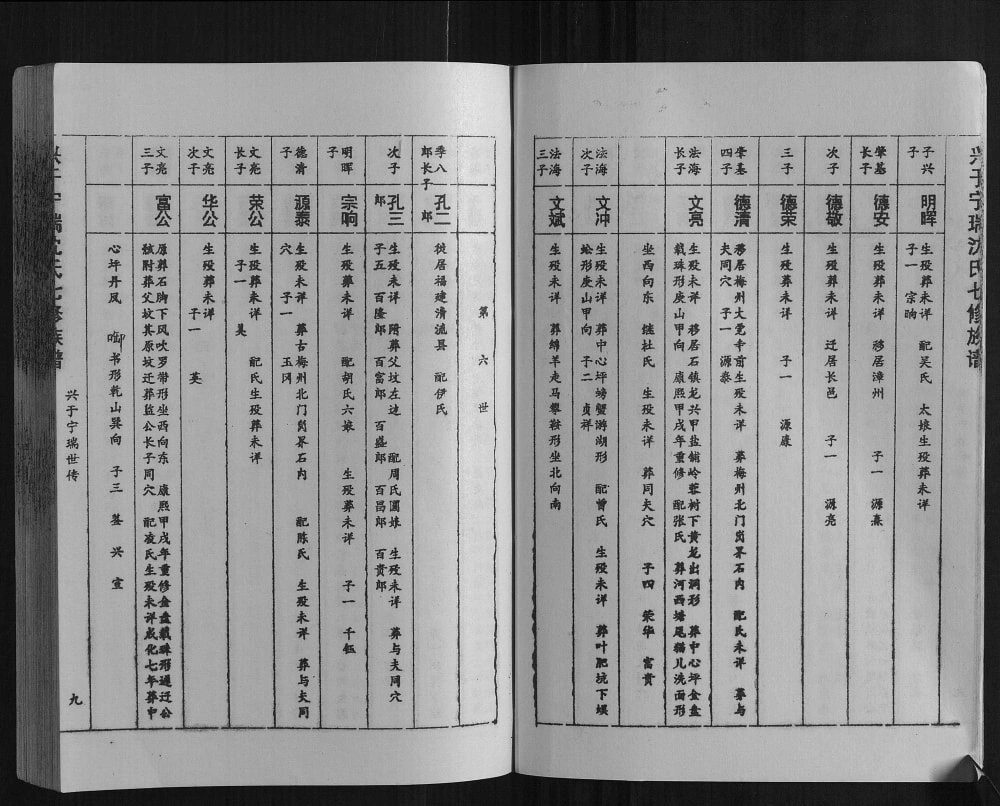 兴于宁瑞沈氏七修族谱
子兴子
明晖
生殁葬未详 配吴氏 太娘生殁葬未详
子一 宗响
肇基长子
德安
生殁葬未详 移居漳州 子一 源焘
次子
德敬
生殁葬未详 迁居长邑 子一 源亮
三子
德荣
生殁葬未详 子一 源康
肇基四子
德清
移居梅州大觉寺前生殁未详 葬梅州北门岗界石内 配氏未详 葬与
夫同穴 子一 源泰
法海长子
文亮
生殁未详 移居石镇龙兴甲盐铺岭蓉树下黄龙出洞形 葬中心坪金盘
载珠形庚山甲向 康熙甲戌年重修 配张氏 葬河西塘尾猫儿洗面形
坐西向东 继杜氏 生殁未详 葬同夫穴 子四 荣华 富贵
法海次子
文冲
生殁未详 葬中心坪螃蟹游湖形 配曾氏 生殁未详 葬叶肥坑下坝
蛤形庚山甲向 子二 贞祥
法海三子
文斌
生殁未详 葬绵羊走马攀鞍形坐北向南
第六世
季八郎长子
孔二郎
徙居福建清流县 配伊氏
次子
孔三郎
生殁未详 附葬父坟左边 配周氏圆娘 生殁未详 葬与夫同穴
子五 百隆郎 百富郎 百盛郎 百昌郎 百贵郎
明晖子
宗响
生殁葬未详 配胡氏六娘 生殁葬未详 子一 千钰
德清子
源泰
生殁未详 葬古梅州北门岗界石内 配陈氏 生殁未详 葬与夫同
穴 子一 玉冈
文亮长子
荣公
生殁葬未详 配氏生殁葬未详
子一 昊
文亮次子
华公
生殁葬未详 子一 英
文亮三子
富公
原葬石脚下风吹罗带形坐西向东 康熙甲戌年重修金盘载珠形通迁公
弦附葬父坟其原坟迁葬监公长子同穴 配凌氏生殁未详成化七年葬中
心坪丹凤啣书形乾山巽向 子三 基 兴 宣
兴于宁瑞世传
九
兴于宁瑞沈氏七修族谱